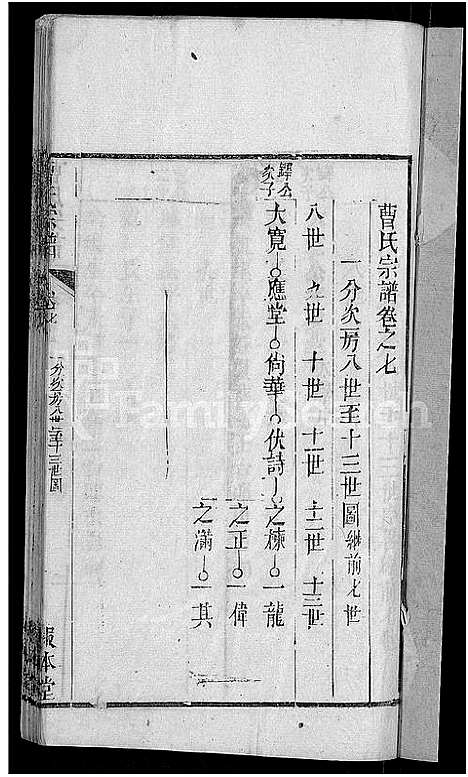 曹氏宗譜卷之七
一分次房八世至十三世圖繼前七世
八世 九世 十世 十一世 十二世 十三世
鐸公次子
大寬 應堂 尙華 伏詩 之棟 一龍
之正 一偉
之滿 一其
一分次房八世至十三世圖
報本堂
FamilySearch